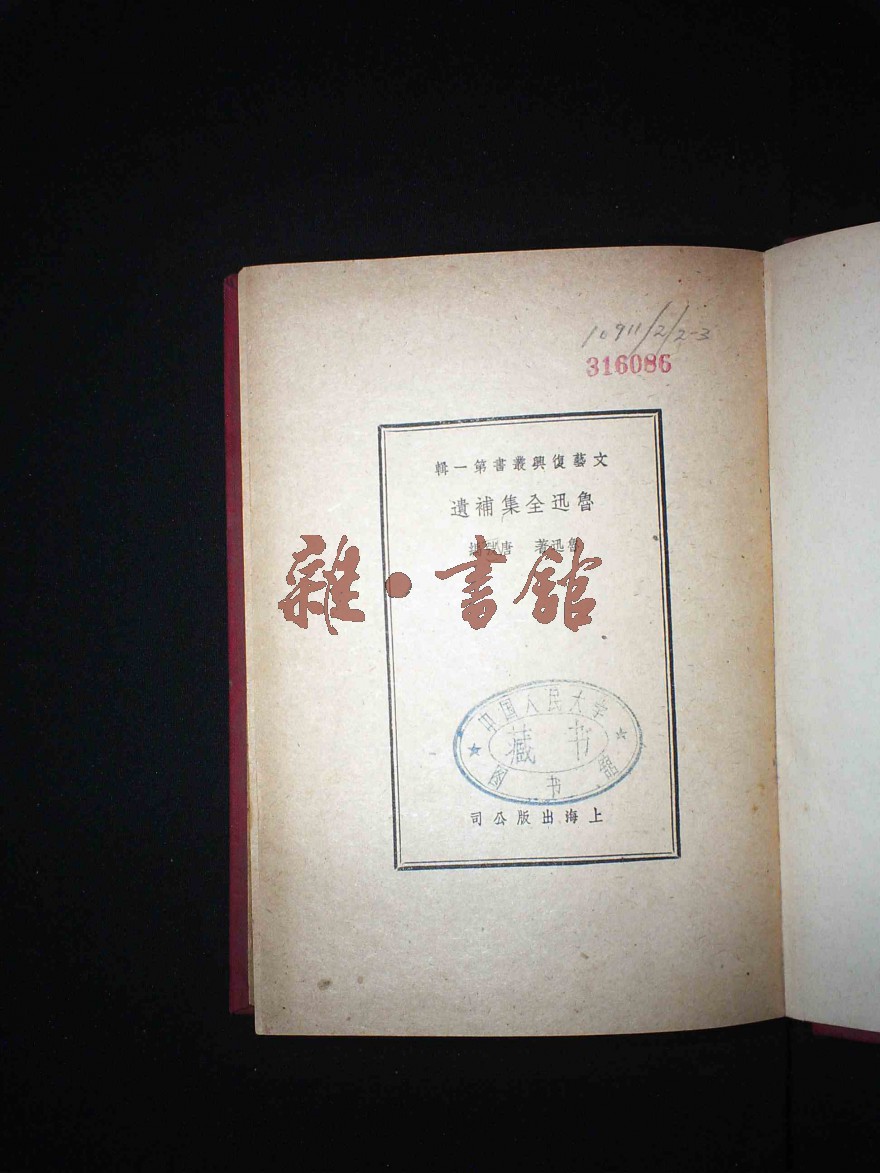 10911/2/2-3
316086
文藝復興叢書第一輯
魯迅全集補遺
魯迅著 唐弢編
雜·書館
中国人民大学
藏书
图书馆
上海出版公司